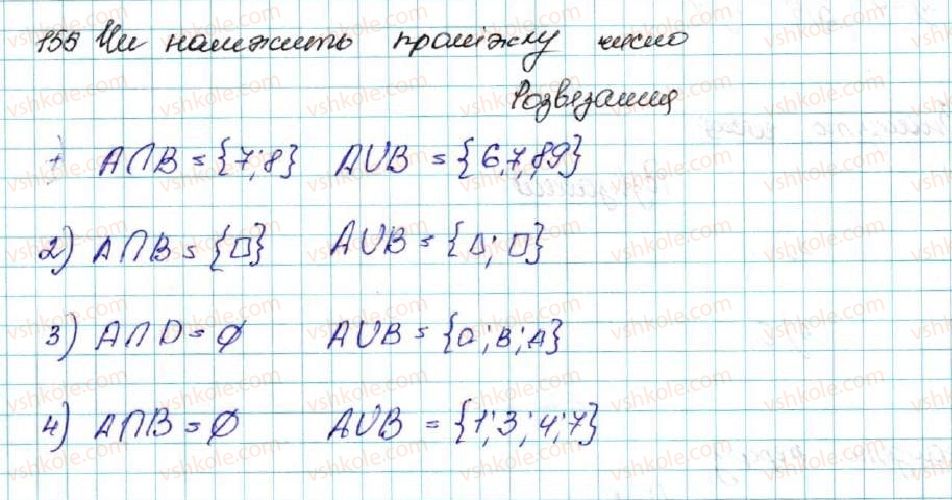 155 Чи належить проміжку число
Розвезання
1 A∩B = {7;8} A∪B = {6,7,89}
2) A∩B = {□} A∪B = {∆; □}
3) A∩D = ∅ A∪B = {O; B; A}
4) A∩B = ∅ A∪B = {1; 3; 4; 7}
vshkole.com